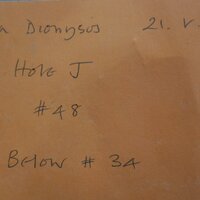 a Dionysos 21. V.
Hole J
#48
Below # 34